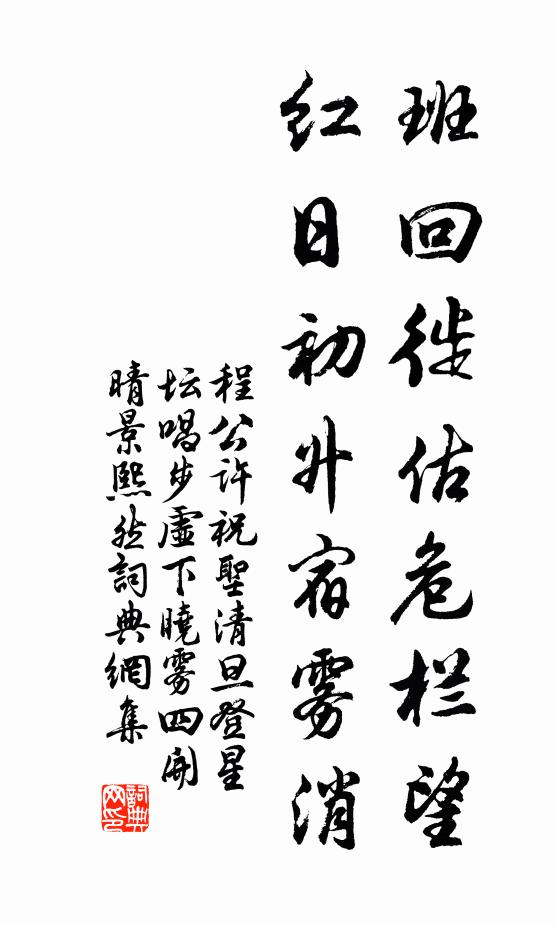 班回徙估危栏望
红日初升宿雾消
程公许祝聖清旦登星
坛唱步虚下曉雾四開
晴景熙然詞典網集
詞典网印